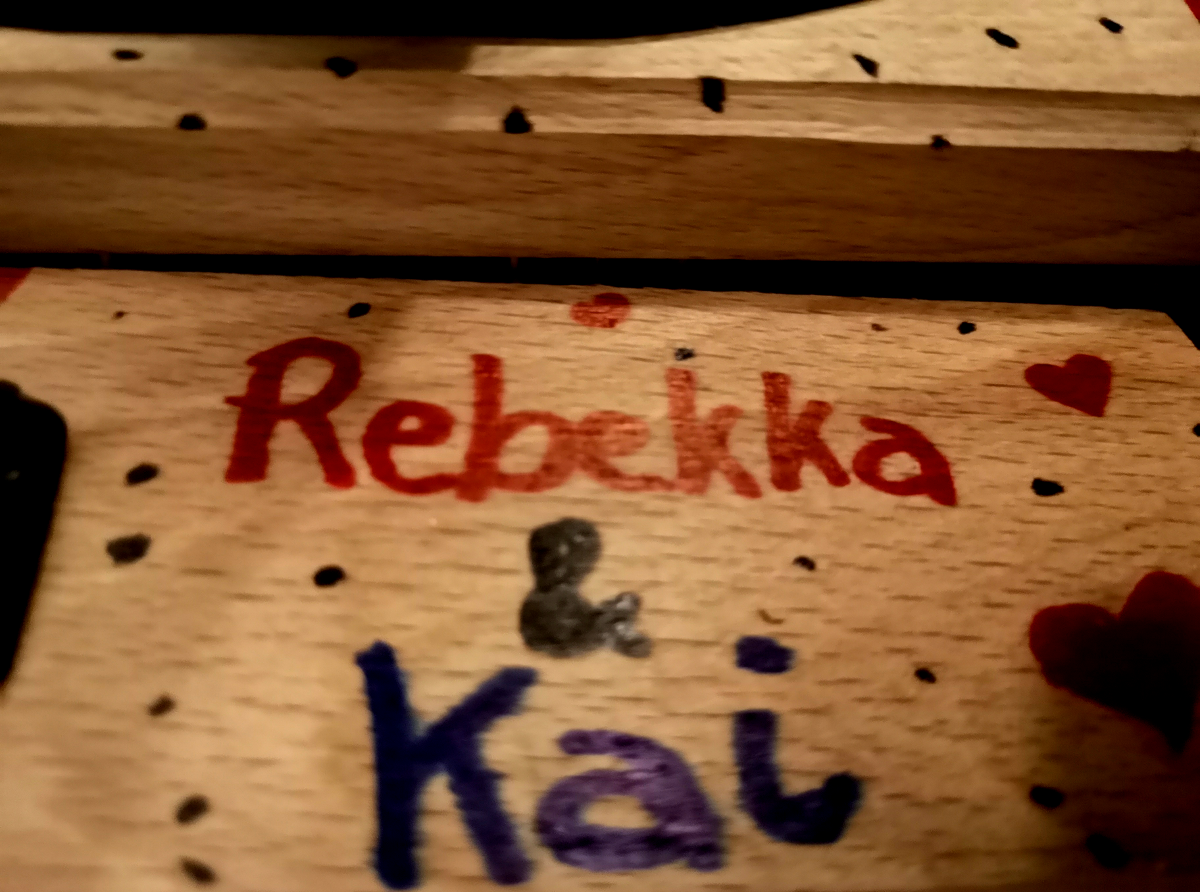 Rebekka
&
Kai